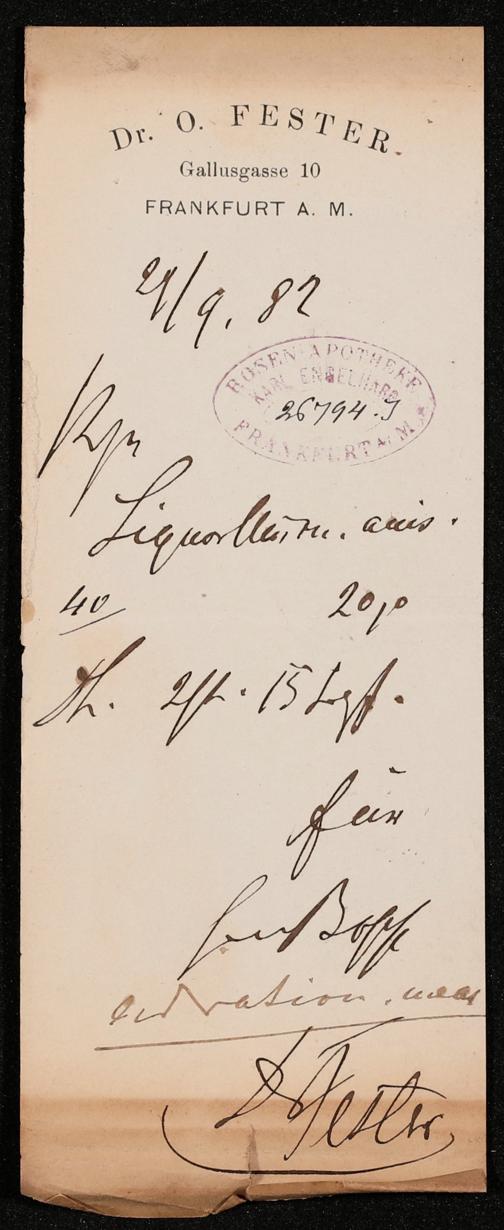 Dr. O. FESTER.
Gallusgasse 10
FRANKFURT A. M.
/9. 82
ROSEN-APOTHEKE
KARL ENGELHARD
26794.J
FRANKFURT A. M.
Rp
Liquor Amm. anis.
40
20,0
15
für
Bopp
ad ration. meam
Dr Fester